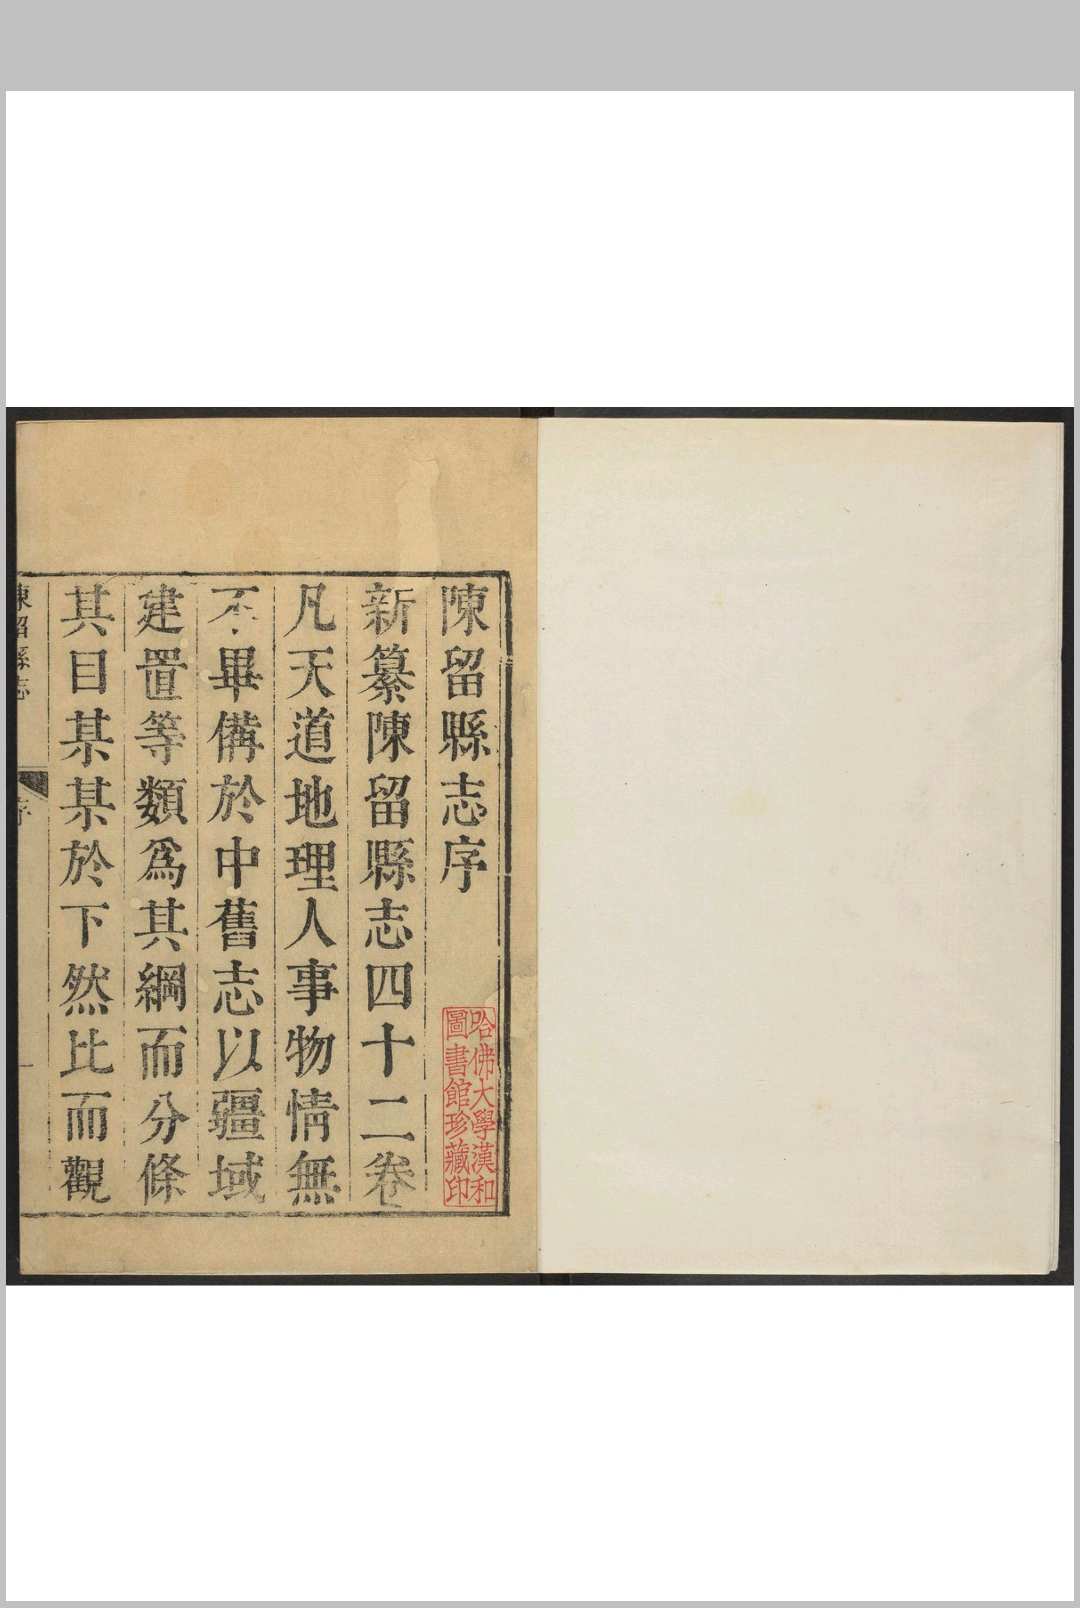 陳留縣志序
哈佛大學漢和
圖書館珍藏印
新纂陳留縣志四十二卷
凡天道地理人事物情無
不畢備於中舊志以疆域
建置等類爲其綱而分條
其目某某於下然比而觀
陳留縣志
序